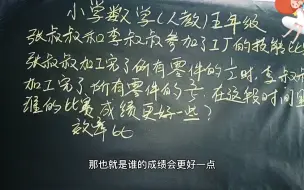 小学数学(人教)五年级
张叔叔和李叔叔参加了工厂的技能比
张叔叔加工完了所有零件的1/2时,李叔
加工完了所有零件的 在这段时间里
谁的比赛成绩更好一些?
效率比
那也就是谁的成绩会更好一点